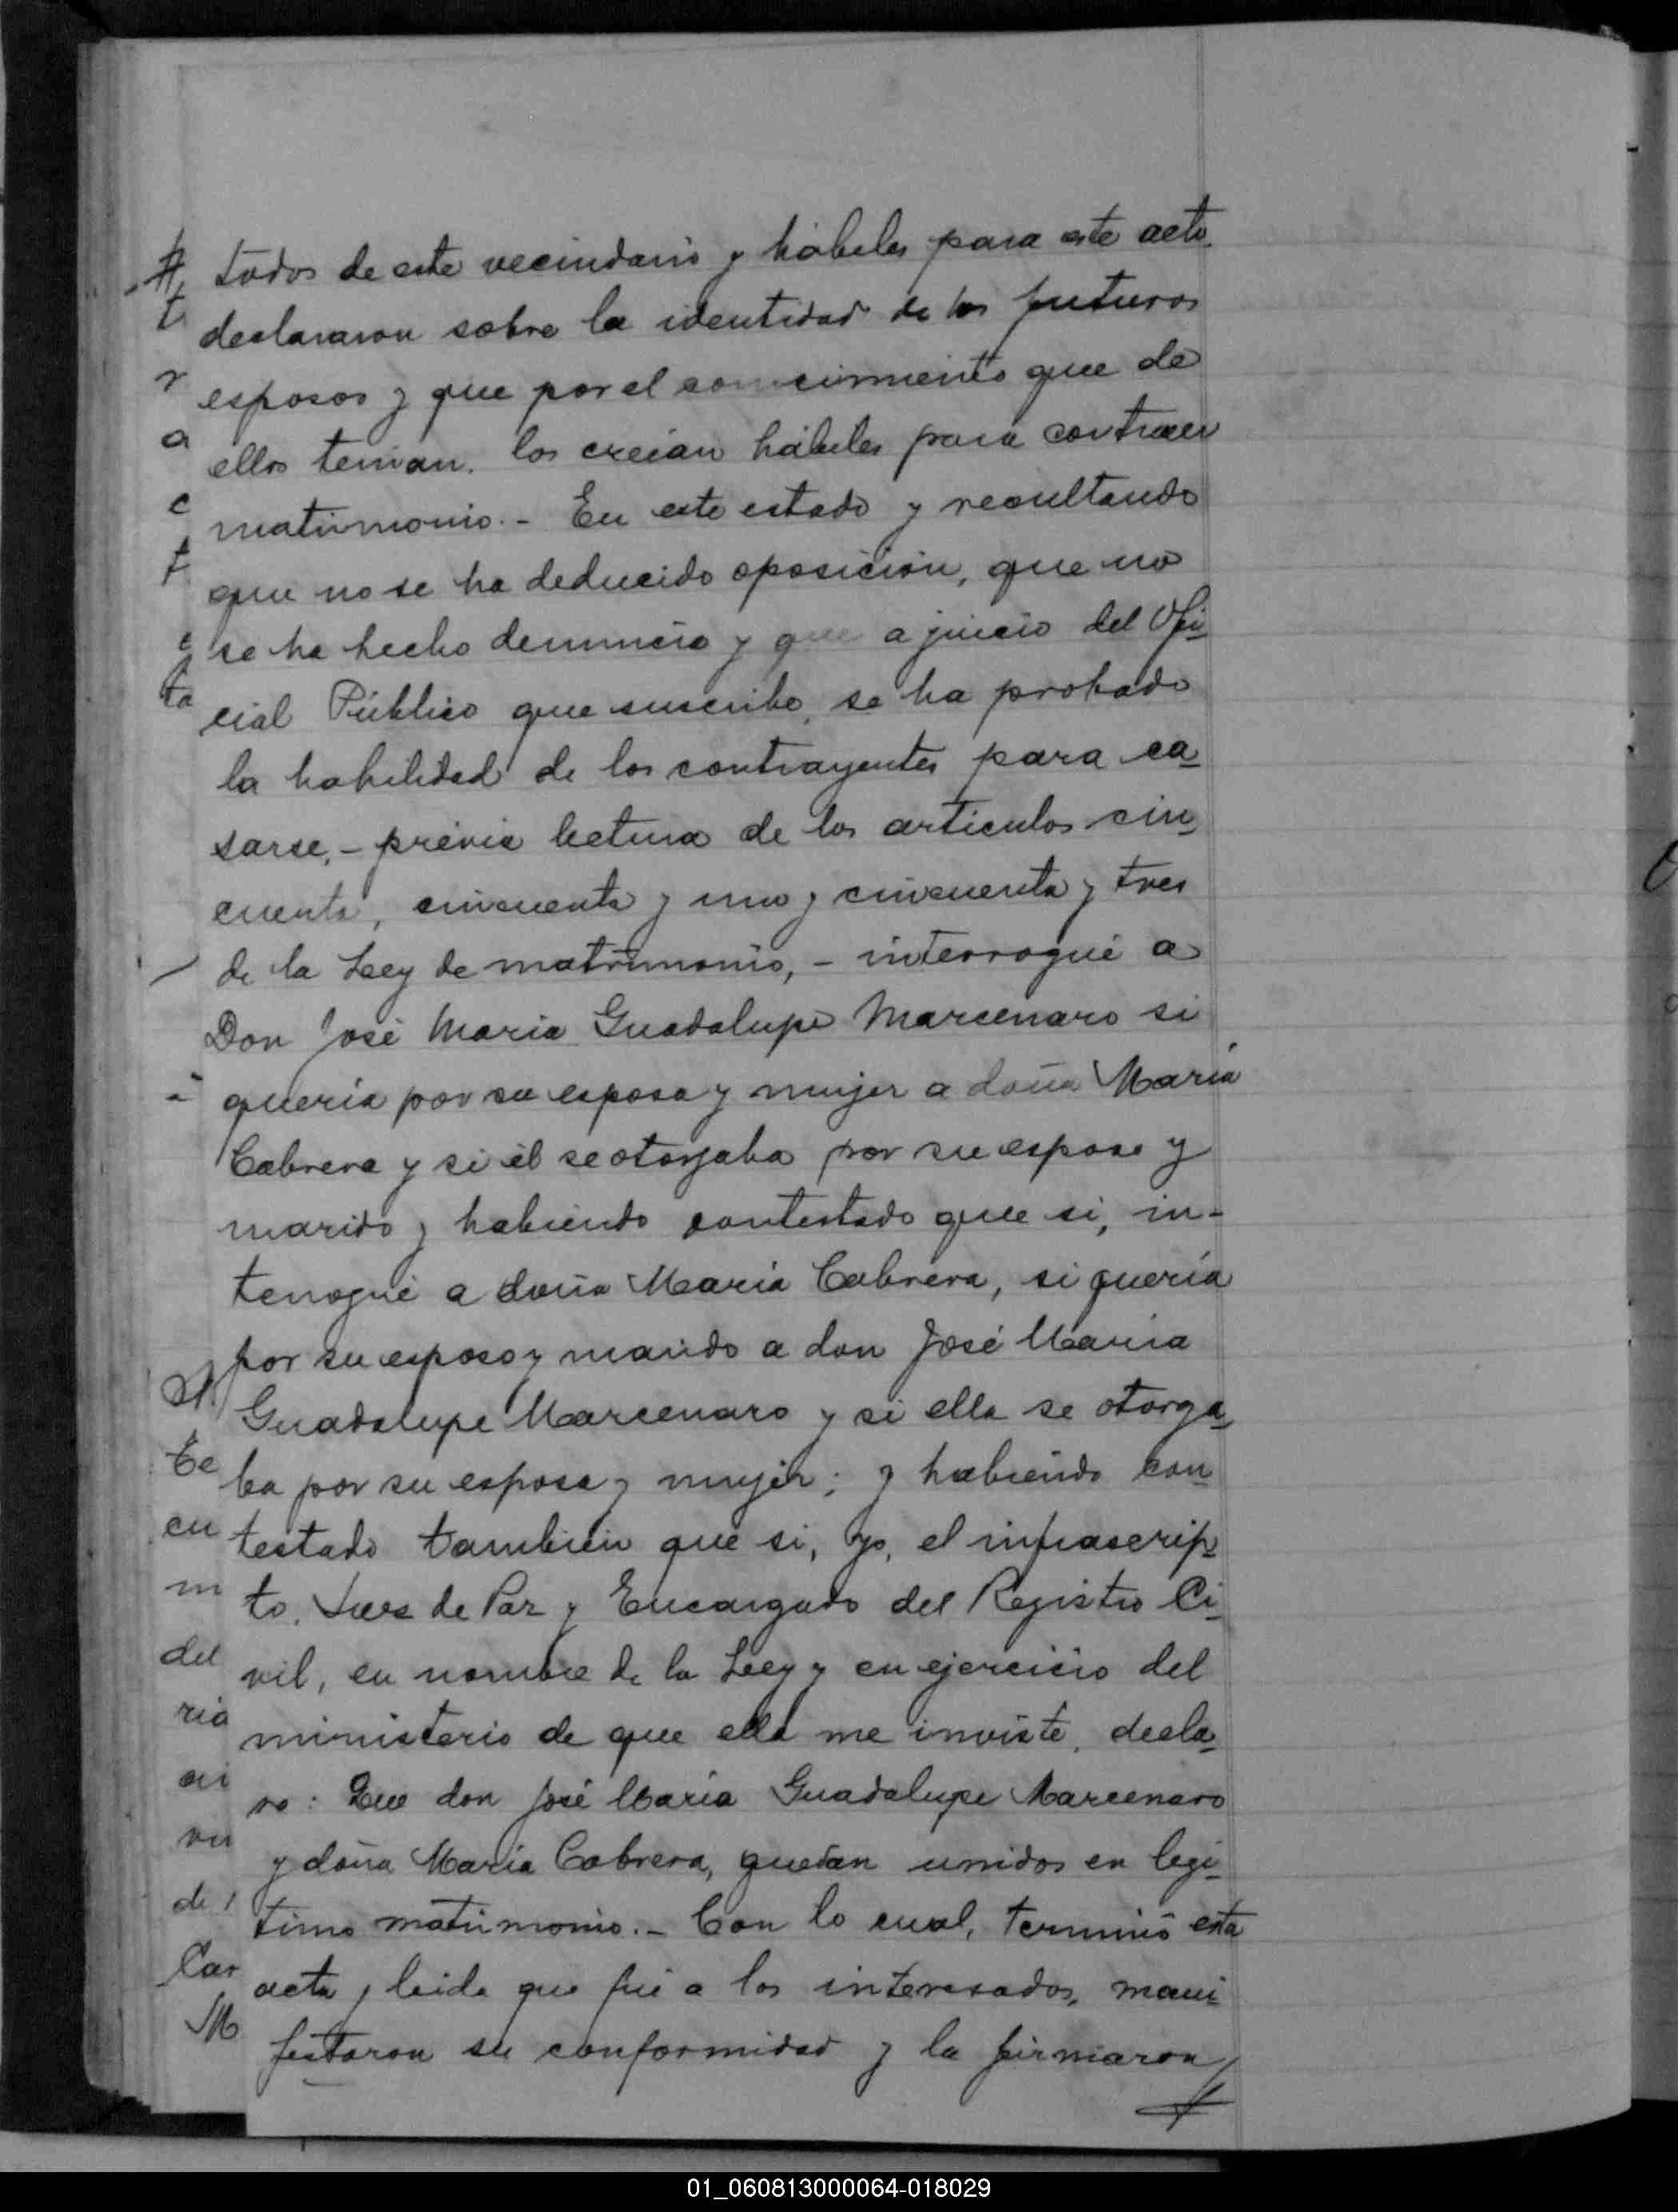 todos de este vecindario y hábiles para este acto
declararon sobre la identidad de los futuros
esposos y que por el conocimiento que de
ellos tenían, los creían hábiles para contraer
matrimonio.- En este estado y resultando
que no se ha deducido oposición, que no
se ha hecho denuncia y que a juicio del Ofi-
cial Público que suscribe, se ha probado
la habilidad de los contrayentes para ca-
sarse,- previa lectura de los artículos cin-
cuenta, cincuenta y uno y cincuenta y tres
de la Ley de matrimonio,- interrogué a
Don José María Guadalupe Marcenaro si
quería por su esposa y mujer a doña María
Cabrera y si él se otorgaba por su esposo y
marido y habiendo contestado que si, in-
terrogué a doña María Cabrera, si quería
por su esposo y marido a don José María
Guadalupe Marcenaro y si ella se otorga-
ba por su esposa y mujer; y habiendo con-
testado también que si, yo, el infrascrip-
to, Juez de Paz y Encargado del Registro Ci-
vil, en nombre de la Ley y en ejercicio del
ministerio de que ella me inviste, decla-
ro: Que don José María Guadalupe Marcenaro
y doña María Cabrera, quedan unidos en legí-
timo matrimonio.- Con lo cual, terminó esta
acta y leida que fué a los interesados, mani-
festaron su conformidad y la firmaron
01_060813000064-018029